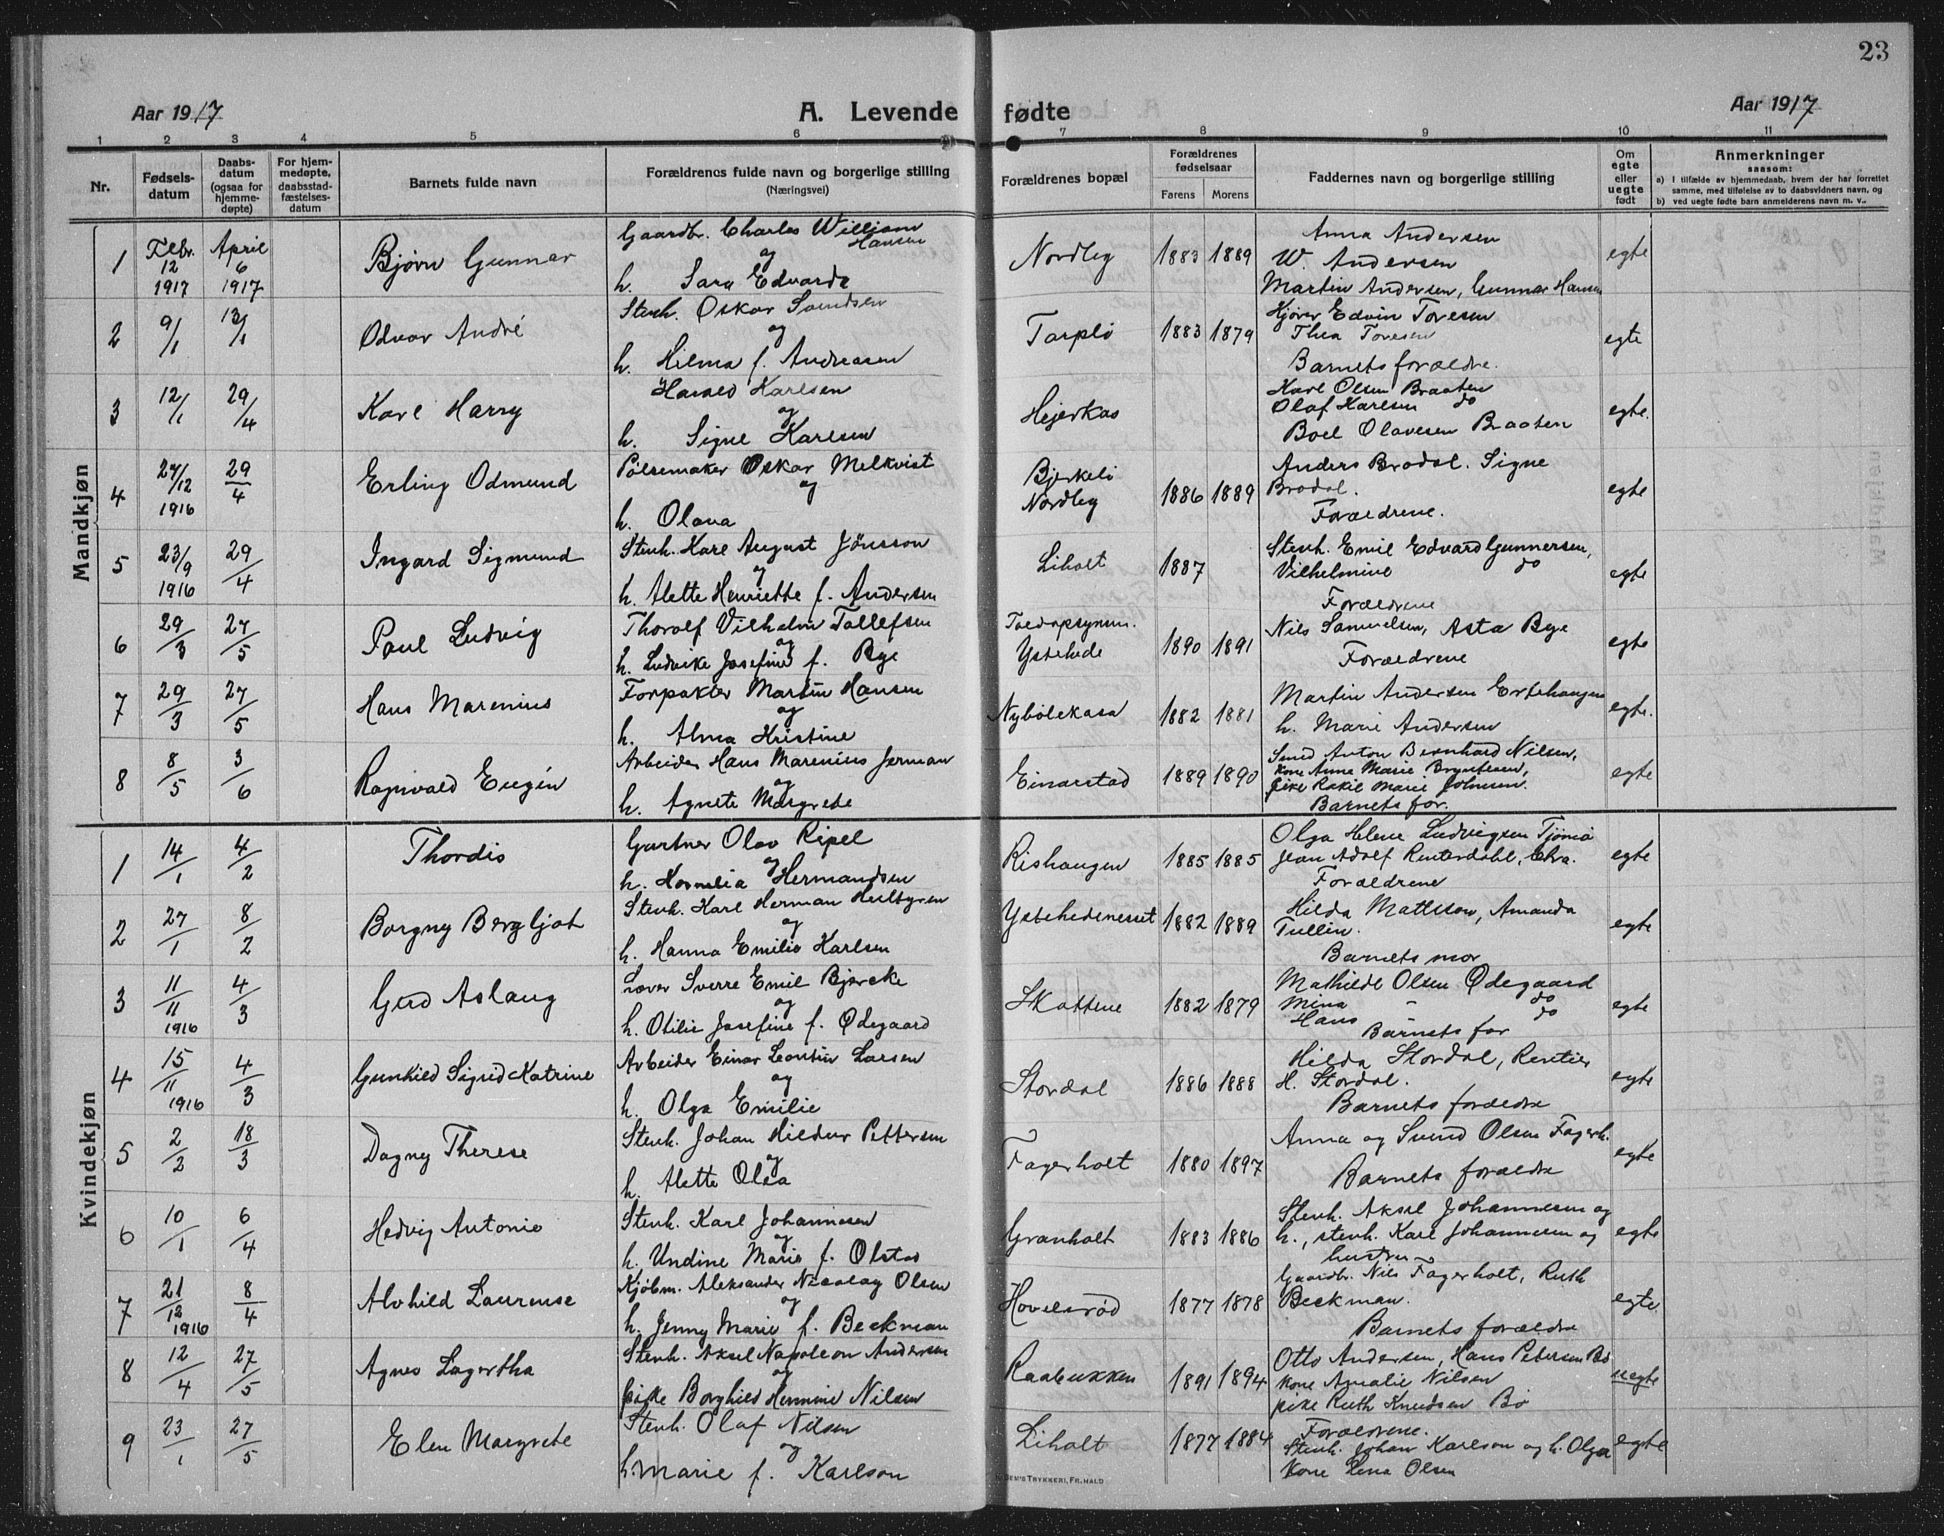 23
Aar 1917
A. Levende fødte
Aar 1917
1 2 3 4 5 6 7 8 9 10 11
Nr.
Fødsels-
datum
Daabs-
datum
(ogsaa for
hjemme-
døpte)
For hjem-
medøpte,
daabsstad-
fæstelses-
datum
Barnets fulde navn
Forældrenes fulde navn og borgerlige stilling
(Næringsvei)
Forældrenes bopæl
Forældrenes
fødselsaar
Farens Morens
Faddernes navn og borgerlige stilling
Om
egte
eller
uegte
født
Anmerkninger
saasom:
a) I tilfælde av hjemmedaab, hvem der har forrettet
samme, med tilføielse av to daabsvidners navn, og
b) ved uegte fødte barn anmelderens navn m. v..
Mandkjøn
1 Febr. 12 1917 April 6 1917 Bjørn Gunnar Gaardbr. Charles William Hansen og h. Sara Edvarda Nordleg 1883 1889 Anna Andersen
W. Andersen
Martin Andersen, Gunnar Hansen egte
2 9/1 13/1 Odvar André Stenh. Oskar Svendsen og h. Hilma f. Andreasen Torplø 1883 1879 Hjører Edvin Toresen
Thea Toresen
Barnets forældre. egte
3 12/1 29/4 Karl Harry Harald Karlsen og h. Signe Karlsen Hejerkas Karl Olsen Braaten
Olaf Karlsen do
Boel Olavesen Braaten egte.
4 27/12 1916 29/4 Erling Odmund Pølsemaker Oskar Melkvist og h. Olava Bjerkelø
Nordleg 1886 1889 Anders Brodal. Signe
Brodal.
Forældrene. egte
5 23/9 1916 29/4 Ingard Sigmund Stenh. Karl August Jönsson og h. Alette Henriette f. Andersen Liholt 1887 Stenh. Emil Edvard Gunnersen,
Vilhelmine do
Forældrene egte
6 29/3 27/5 Paul Ludvig Thoralf Vilhelm Tollefsen og h. Ludvike Josefine f. Bye Toldopsynsm.
Ystehede 1890 1891 Nils Samuelsen, Asta Bye
Forældrene egte
7 29/3 27/5 Hans Marenius Forpakter Martin Hansen og h. Alma Kristine Nybølekasa 1882 1881 Martin Andersen Ertehaugen
h. Marie Andersen egte.
8 8/5 3/6 Ragnvald Eugén Arbeider Hans Marenius Jerman og h. Agnete Margrete Einarstad 1889 1890 Smed Anton Bernhard Nilsen,
kone Anne Marie Bryntesen,
pike Rakil Marie Johnsen.
Barnets far. egte
Kvindekjøn
1 14/1 4/2 Thordis Gartner Olav Ripel og h. Kornelia Hermandsen Rishaugen 1885 1885 Olga Helene Ludvigsen Tjömö
Jean Adolf Rentesdahl, Chra.
Forældrene egte
2 27/1 8/2 Borgny Bergljot Stenh. Karl Herman Hultgren og h. Hanna Emilie Karlsen Ystehedeneset 1882 1889 Hilda Mattsson, Amanda
Tullin.
Barnets mor egte
3 11/11 1916 4/3 Gerd Aslaug Lærer Sverre Emil Bjercke og h. Otilie Josefine f. Ødegaard Skottene 1882 1879 Mathilde Olsen Ødegaard
Mina - do
Hans - do
Barnets far egte
4 15/11 1916 4/3 Gunhild Sigrid Katrine Arbeider Einar Leontin Larsen og h. Olga Emilie Stordal 1886 1888 Hilda Stordal, Rentier
H. Stordal.
Barnets forældre egte
5 2/2 18/3 Dagny Therese Stenh. Johan Hildur Pettersen og h. Alette Olsa Fagerholt 1880 1897 Anna og Svend Olsen Fagerh.
Barnets forældre egte
6 10/1 6/4 Hedvig Antonie Stenh. Karl Johannesen og h. Undine Marie f. Olstad Granholt 1883 1886 Stenh. Aksel Johannesen og
h., stenh. Karl Johannesen og
hustru egte
7 21/12 1916 8/4 Alvhild Laurense Kjøbm. Aleksander Nicolay Olsen og h. Jenny Marie f. Beckman Hovelsrød 1877 1878 Gaardbr. Nils Fagerholt, Ruth
Beckman.
Barnets forældre egte.
8 12/4 27/5 Agnes Lagertha Stenh. Aksel Napoleon Andersen og pike Borghild Hermine Nilsen Raabukken 1891 1894 Otto Andersen, Hans Petersen Bø
kone Amalie Nilsen
pike Ruth Knudsen Bø uegte
9 23/1 27/5 Elen Margrete Stenh. Olaf Nilsen og h. Marie f. Karlson Liholt 1877 1884 Forældrene.
Stenh. Johan Karlson og h. Olga
Kone Lena Olsen egte
TRYKKERI, FR.HALD